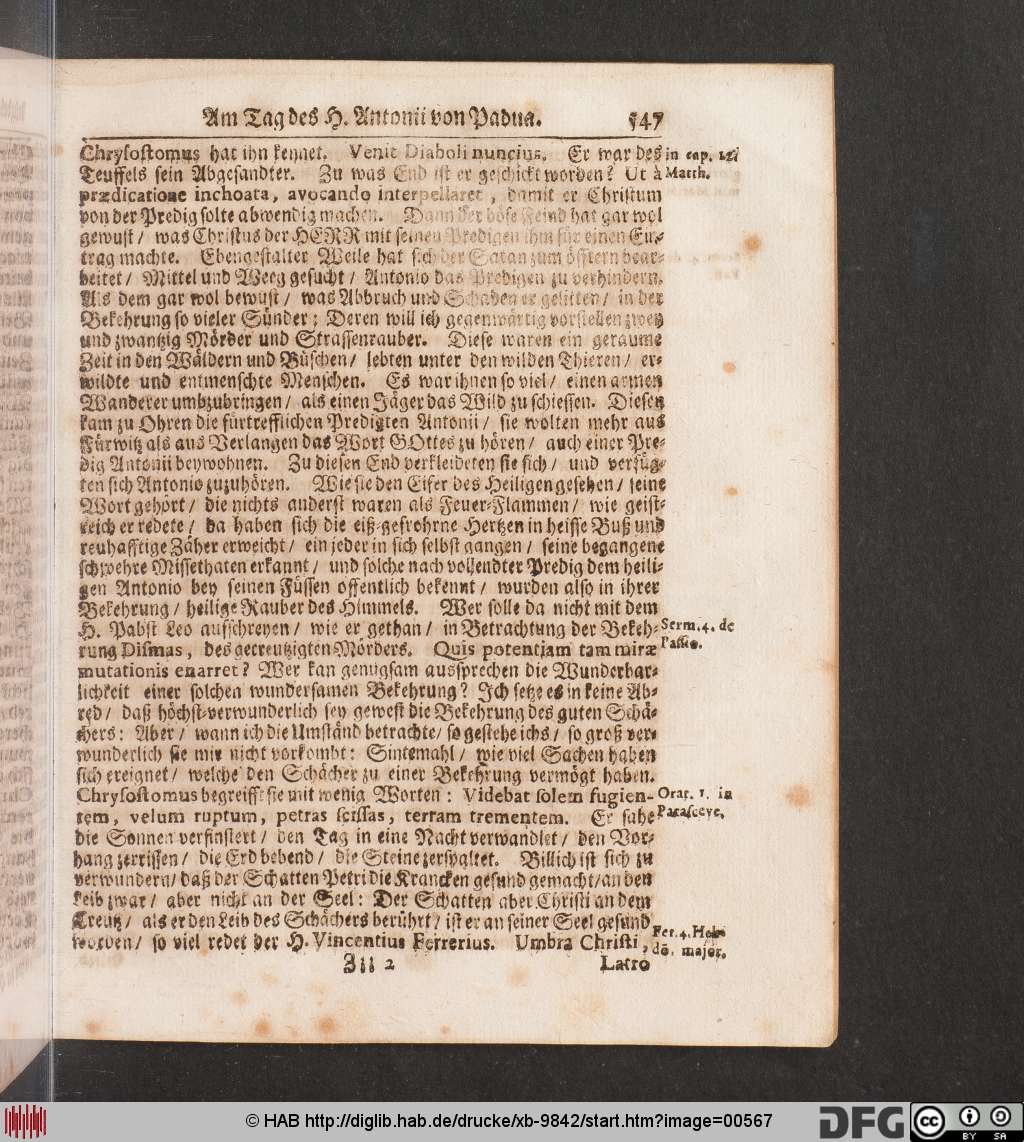 Am Tag des H. Antonii von Padua. 547
Chrysostomus hat ihn kennet. Venit Diaboli nuncius. Er war des in cap. 12.
Teuffels sein Abgesandter. Zu was End ist er geschickt worden? Ut à Matth.
prædicatione inchoata, avocando interpellaret, damit er Christum
von der Predig solte abwendig machen. Dann der böse Feind hat gar wol
gewust / was Christus der HERR mit seinen Predigen ihm für einen Ein-
trag machte. Ebengestalter Weile hat sich der Satan zum öfftern bear-
beitet / Mittel und Weeg gesucht / Antonio das Predigen zu verhindern.
Als dem gar wol bewust / was Abbruch und Schaden er gelitten / in der
Bekehrung so vieler Sünder; Deren will ich gegenwärtig vorstellen zwey
und zwantzig Mörder und Strassenrauber. Diese waren ein geraume
Zeit in den Wäldern und Büschen / lebten unter den wilden Thieren / er-
wildte und entmenschte Menschen. Es war ihnen so viel / einen armen
Wanderer umbzubringen / als einen Jäger das Wild zu schiessen. Diesen
kam zu Ohren die fürtrefflichen Predigten Antonii / sie wolten mehr aus
Fürwitz als aus Verlangen das Wort GOttes zu hören / auch einer Pre-
dig Antonii beywohnen. Zu diesen End verkleideten sie sich / und verfüg-
ten sich Antonio zuzuhören. Wie sie den Eifer des Heiligen gesehen / seine
Wort gehört / die nichts anderst waren als Feuer-Flammen / wie geist-
reich er redete / da haben sich die eiß-gefrohrne Hertzen in heisse Buß und
reuhafftige Zäher erweicht / ein jeder in sich selbst gangen / seine begangene
schwehre Missethaten erkannt / und solche nach vollendter Predig dem heili-
gen Antonio bey seinen Füssen offentlich bekennt / wurden also in ihrer
Bekehrung / heilige Rauber des Himmels. Wer solle da nicht mit dem
H. Pabst Leo aufschreyen / wie er gethan / in Betrachtung der Bekeh- Serm. 4. de
rung Dismas, des gecreutzigten Mörders. Quis potentiam tam miræ Passio.
mutationis enarret? Wer kan genugsam aussprechen die Wunderbar-
lichkeit einer solchen wundersamen Bekehrung? Ich setze es in keine Ab-
red / daß höchst-verwunderlich sey gewest die Bekehrung des guten Schä-
chers: Aber / wann ich die Umständ betrachte / so gestehe ichs / so groß ver-
wunderlich sie mir nicht vorkombt: Sintemahl / wie viel Sachen haben
sich ereignet / welche den Schächer zu einer Bekehrung vermögt haben.
Chrysostomus begreifft sie mit wenig Worten: Videbat solem fugien- Orat. 1. in
tem, velum ruptum, petras scissas, terram trementem. Er sahe Parasceve.
die Sonnen verfinstert / den Tag in eine Nacht verwandlet / den Vor-
hang zerrissen / die Erd bebend / die Steine zerspaltet. Billich ist sich zu
verwundern / daß der Schatten Petri die Krancken gesund gemacht / an den
Leib zwar / aber nicht an der Seel: Der Schatten aber Christi an dem
Creutz / als er den Leib des Schächers berührt / ist er an seiner Seel gesund
worden / so viel redet der H. Vincentius Ferrerius. Umbra Christi, Fer. 4. Heb-
dō. major.
Zzz 2 Latro
© HAB http://diglib.hab.de/drucke/xb-9842/start.htm?image=00567
DFG cc BY SA